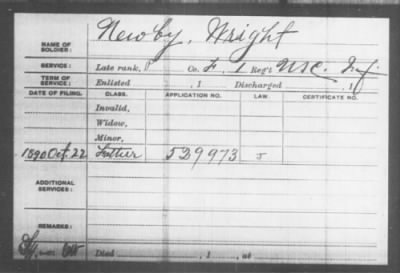 NAME OF SOLDIER: Newby, Wright
SERVICE: Late rank, P Co. F, 1 Reg't U.S.C. Inf
TERM OF SERVICE: Enlisted , 1 Discharged , 1
DATE OF FILING. CLASS. APPLICATION NO. LAW. CERTIFICATE NO.
Invalid,
Widow,
Minor,
1890 Oct. 22 Father 529973 J
ADDITIONAL SERVICES:
REMARKS:
Died , 1 , at